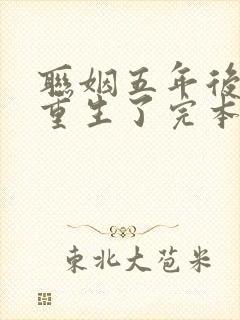 聯姻五年後
重生了完本
東北大苞米